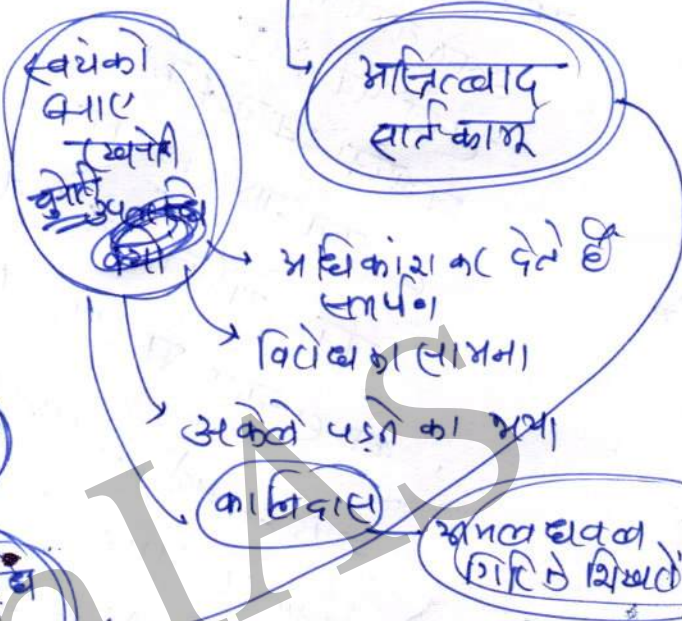 स्वयं को
बनाए
रखने की
चुनौती
क्यों
अस्तित्ववाद
सार्त्र कामू
अधिकांश कर देते हैं
समर्पण
विरोध का सामना
अकेले पड़ने का भय
कालिदास
अमल धवल
गिरि के शिखरों
IAS